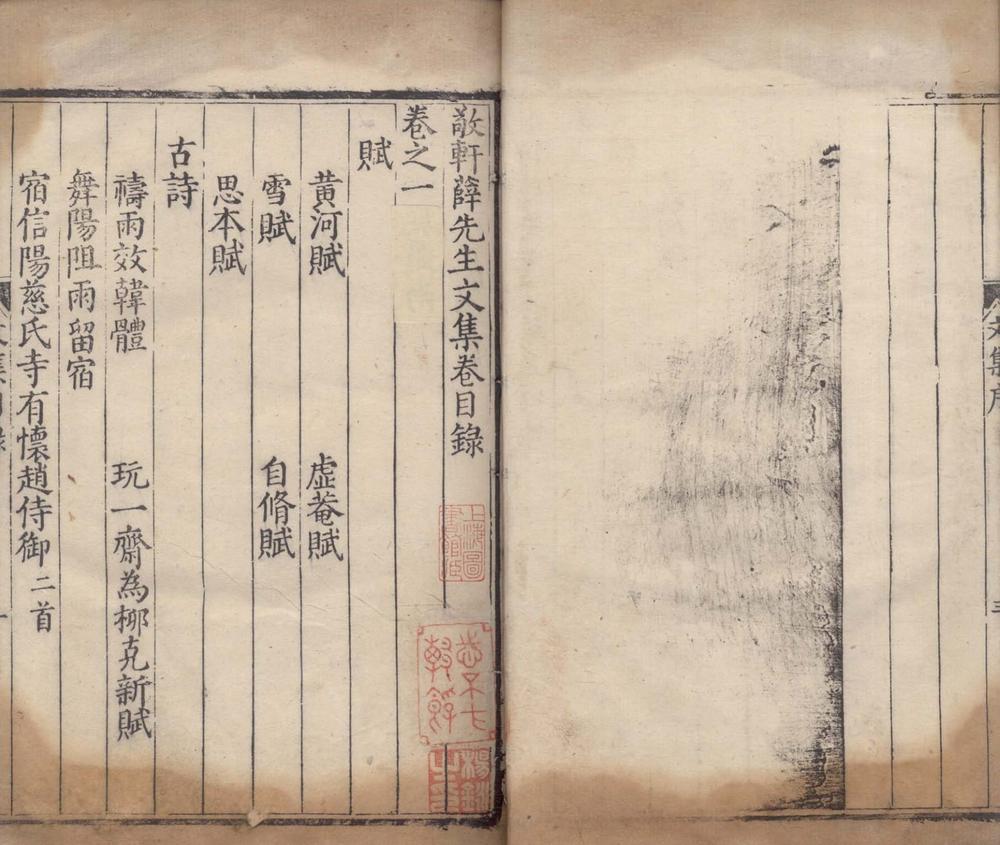 文集序
敬軒薛先生文集卷目錄
卷之一
賦
黃河賦 虛菴賦
雪賦 自脩賦
思本賦
古詩
禱雨效韓體 玩一齋為栁克新賦
舞陽阻雨留宿
宿信陽慈氏寺有懷趙侍御二首
文集目錄
一
上海圖書館藏